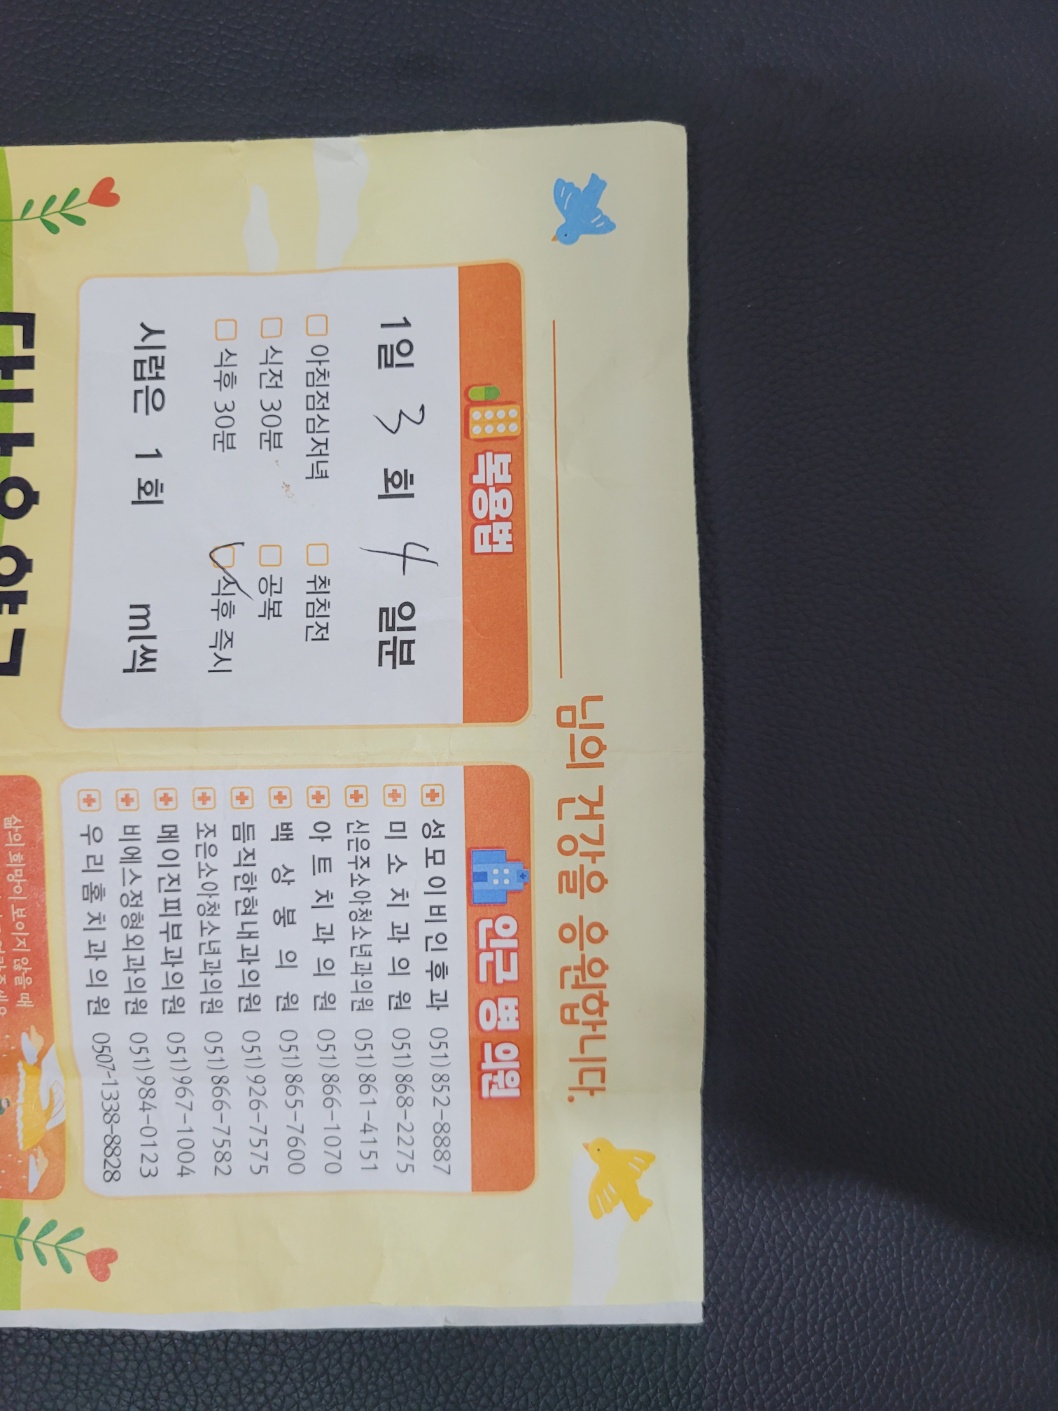 님의 건강을 응원합니다.
복용법
1일 3 회 4 일분
아침점심저녁 취침전
식전 30분 공복
식후 30분 식후 즉시
시럽은 1 회 ml씩
인근 병 의원
성모이비인후과 051)852-8887
미소치과의원 051)868-2275
신은주소아청소년과의원 051)861-4151
아트치과의원 051)866-1070
백상붕의원 051)865-7600
듬직한현내과의원 051)926-7575
조은소아청소년과의원 051)866-7582
메이진피부과의원 051)967-1004
비에스정형외과의원 051)984-0123
우리홈치과의원 0507-1338-8828
삶의 희망이 보이지 않을 때